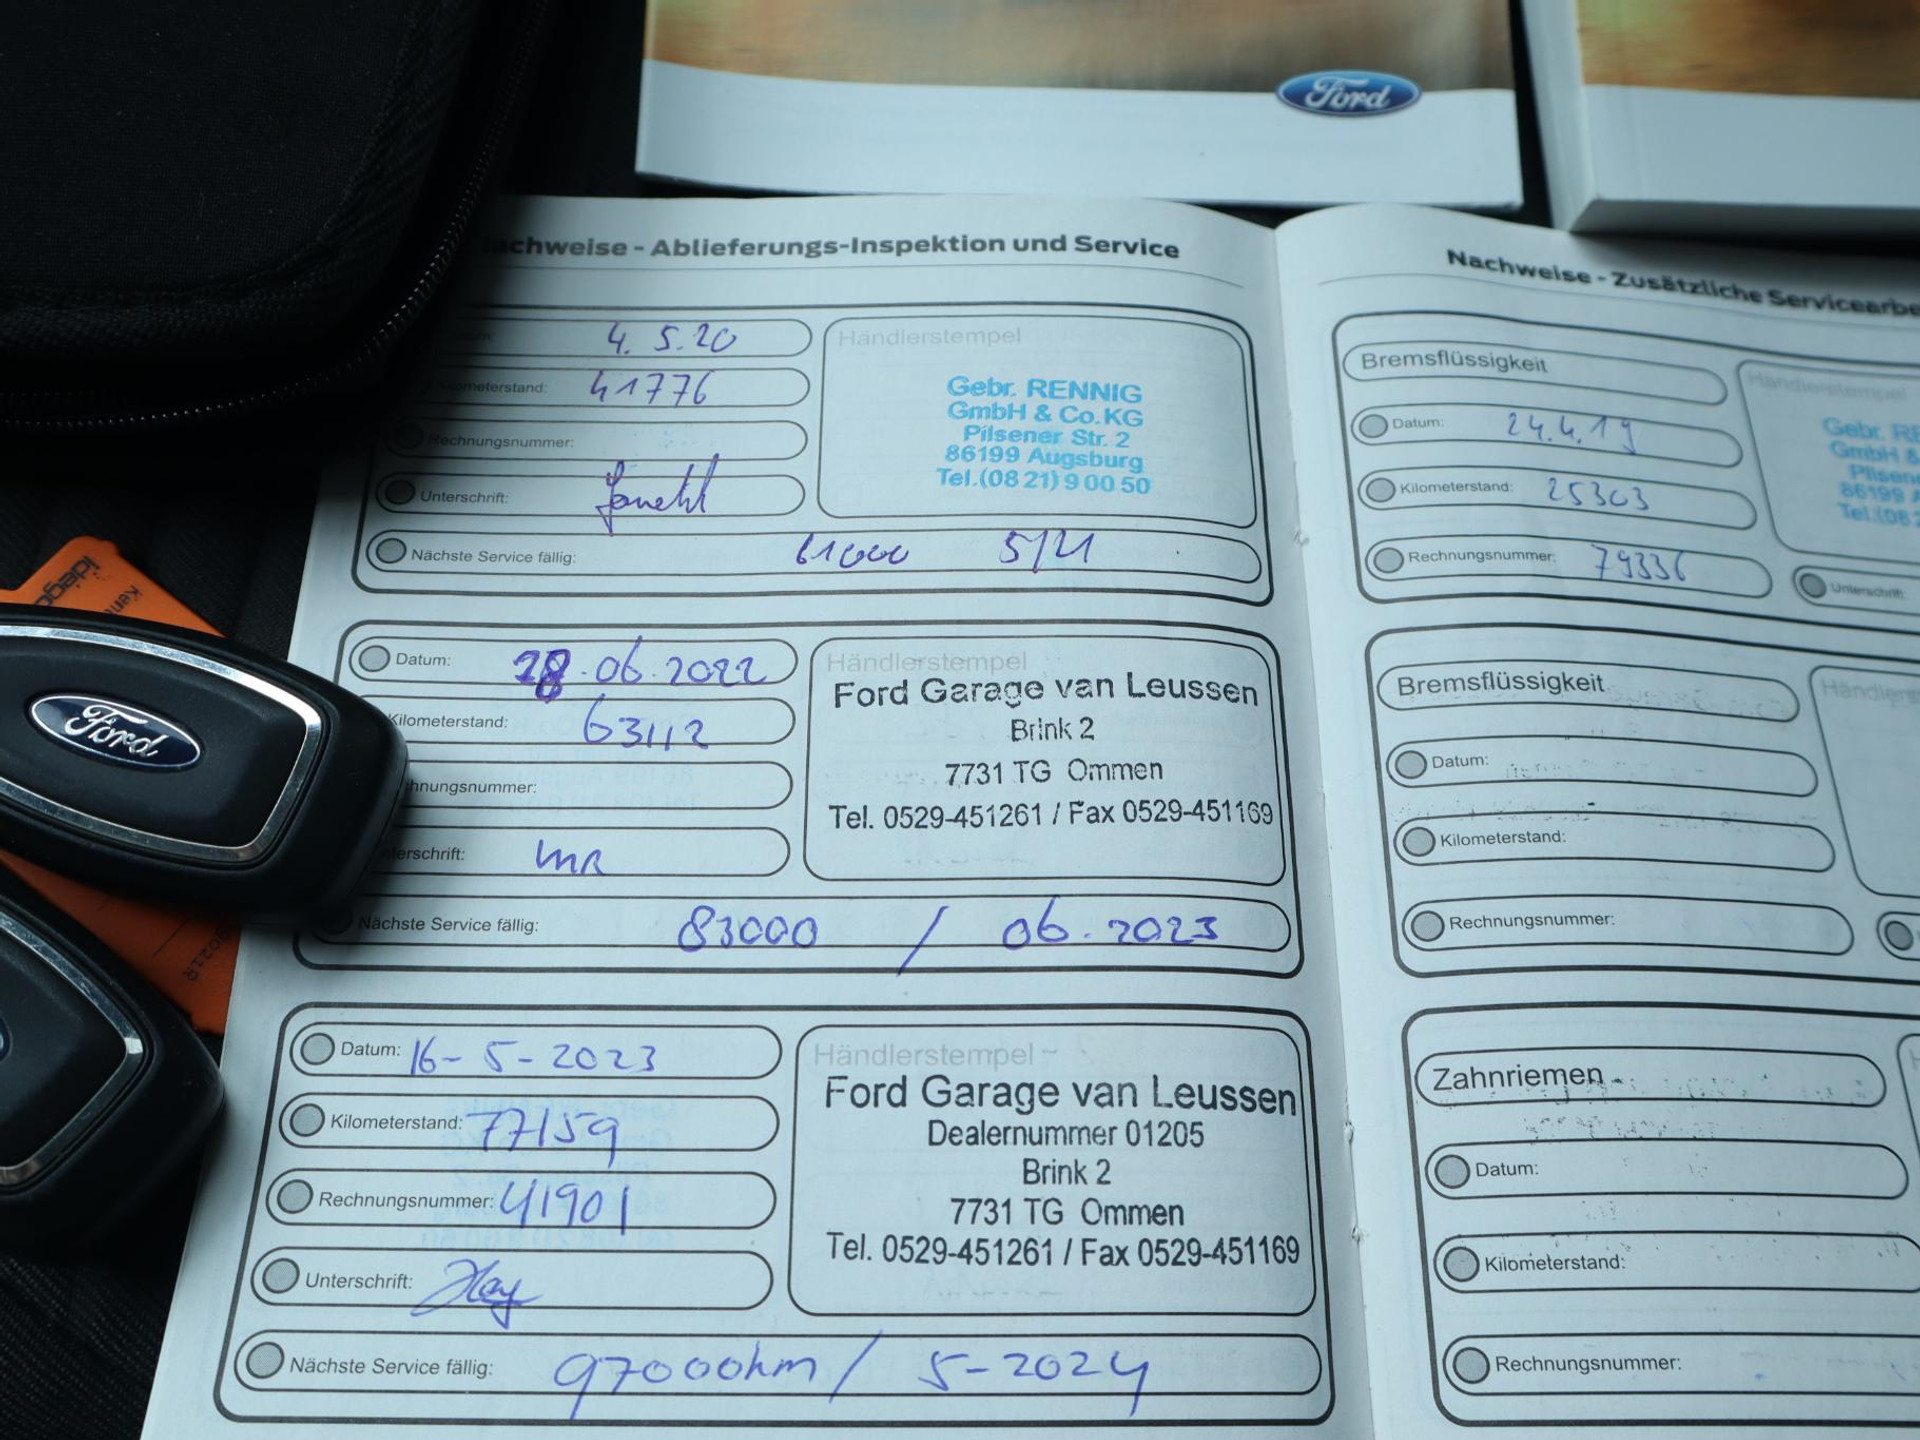 Ford
achweise - Ablieferungs-Inspektion und Service
4.5.20
Kilometerstand: 41776
Rechnungsnummer:
Unterschrift:
Nächste Service fällig: 61000 5/21
Händlerstempel
Gebr. RENNIG
GmbH & Co.KG
Pilsener Str. 2
86199 Augsburg
Tel.(08 21) 9 00 50
Datum: 28.06.2022
Kilometerstand: 63112
chnungsnummer:
erschrift: MR
Nächste Service fällig: 83000 / 06.2023
Händlerstempel
Ford Garage van Leussen
Brink 2
7731 TG Ommen
Tel. 0529-451261 / Fax 0529-451169
Datum: 16-5-2023
Kilometerstand: 77159
Rechnungsnummer: 41901
Unterschrift:
Nächste Service fällig: 97000km / 5-2024
Händlerstempel
Ford Garage van Leussen
Dealernummer 01205
Brink 2
7731 TG Ommen
Tel. 0529-451261 / Fax 0529-451169
Nachweise - Zusätzliche Servicearbe
Bremsflüssigkeit
Datum: 24.4.19
Kilometerstand: 25303
Rechnungsnummer: 79336
Händlerstempel
Gebr. RE
GmbH &
Pilsene
86199 A
Tel.(08 2
Unterschrift:
Bremsflüssigkeit
Datum:
Kilometerstand:
Rechnungsnummer:
Händlers
Zahnriemen
Datum:
Kilometerstand:
Rechnungsnummer:
Ford